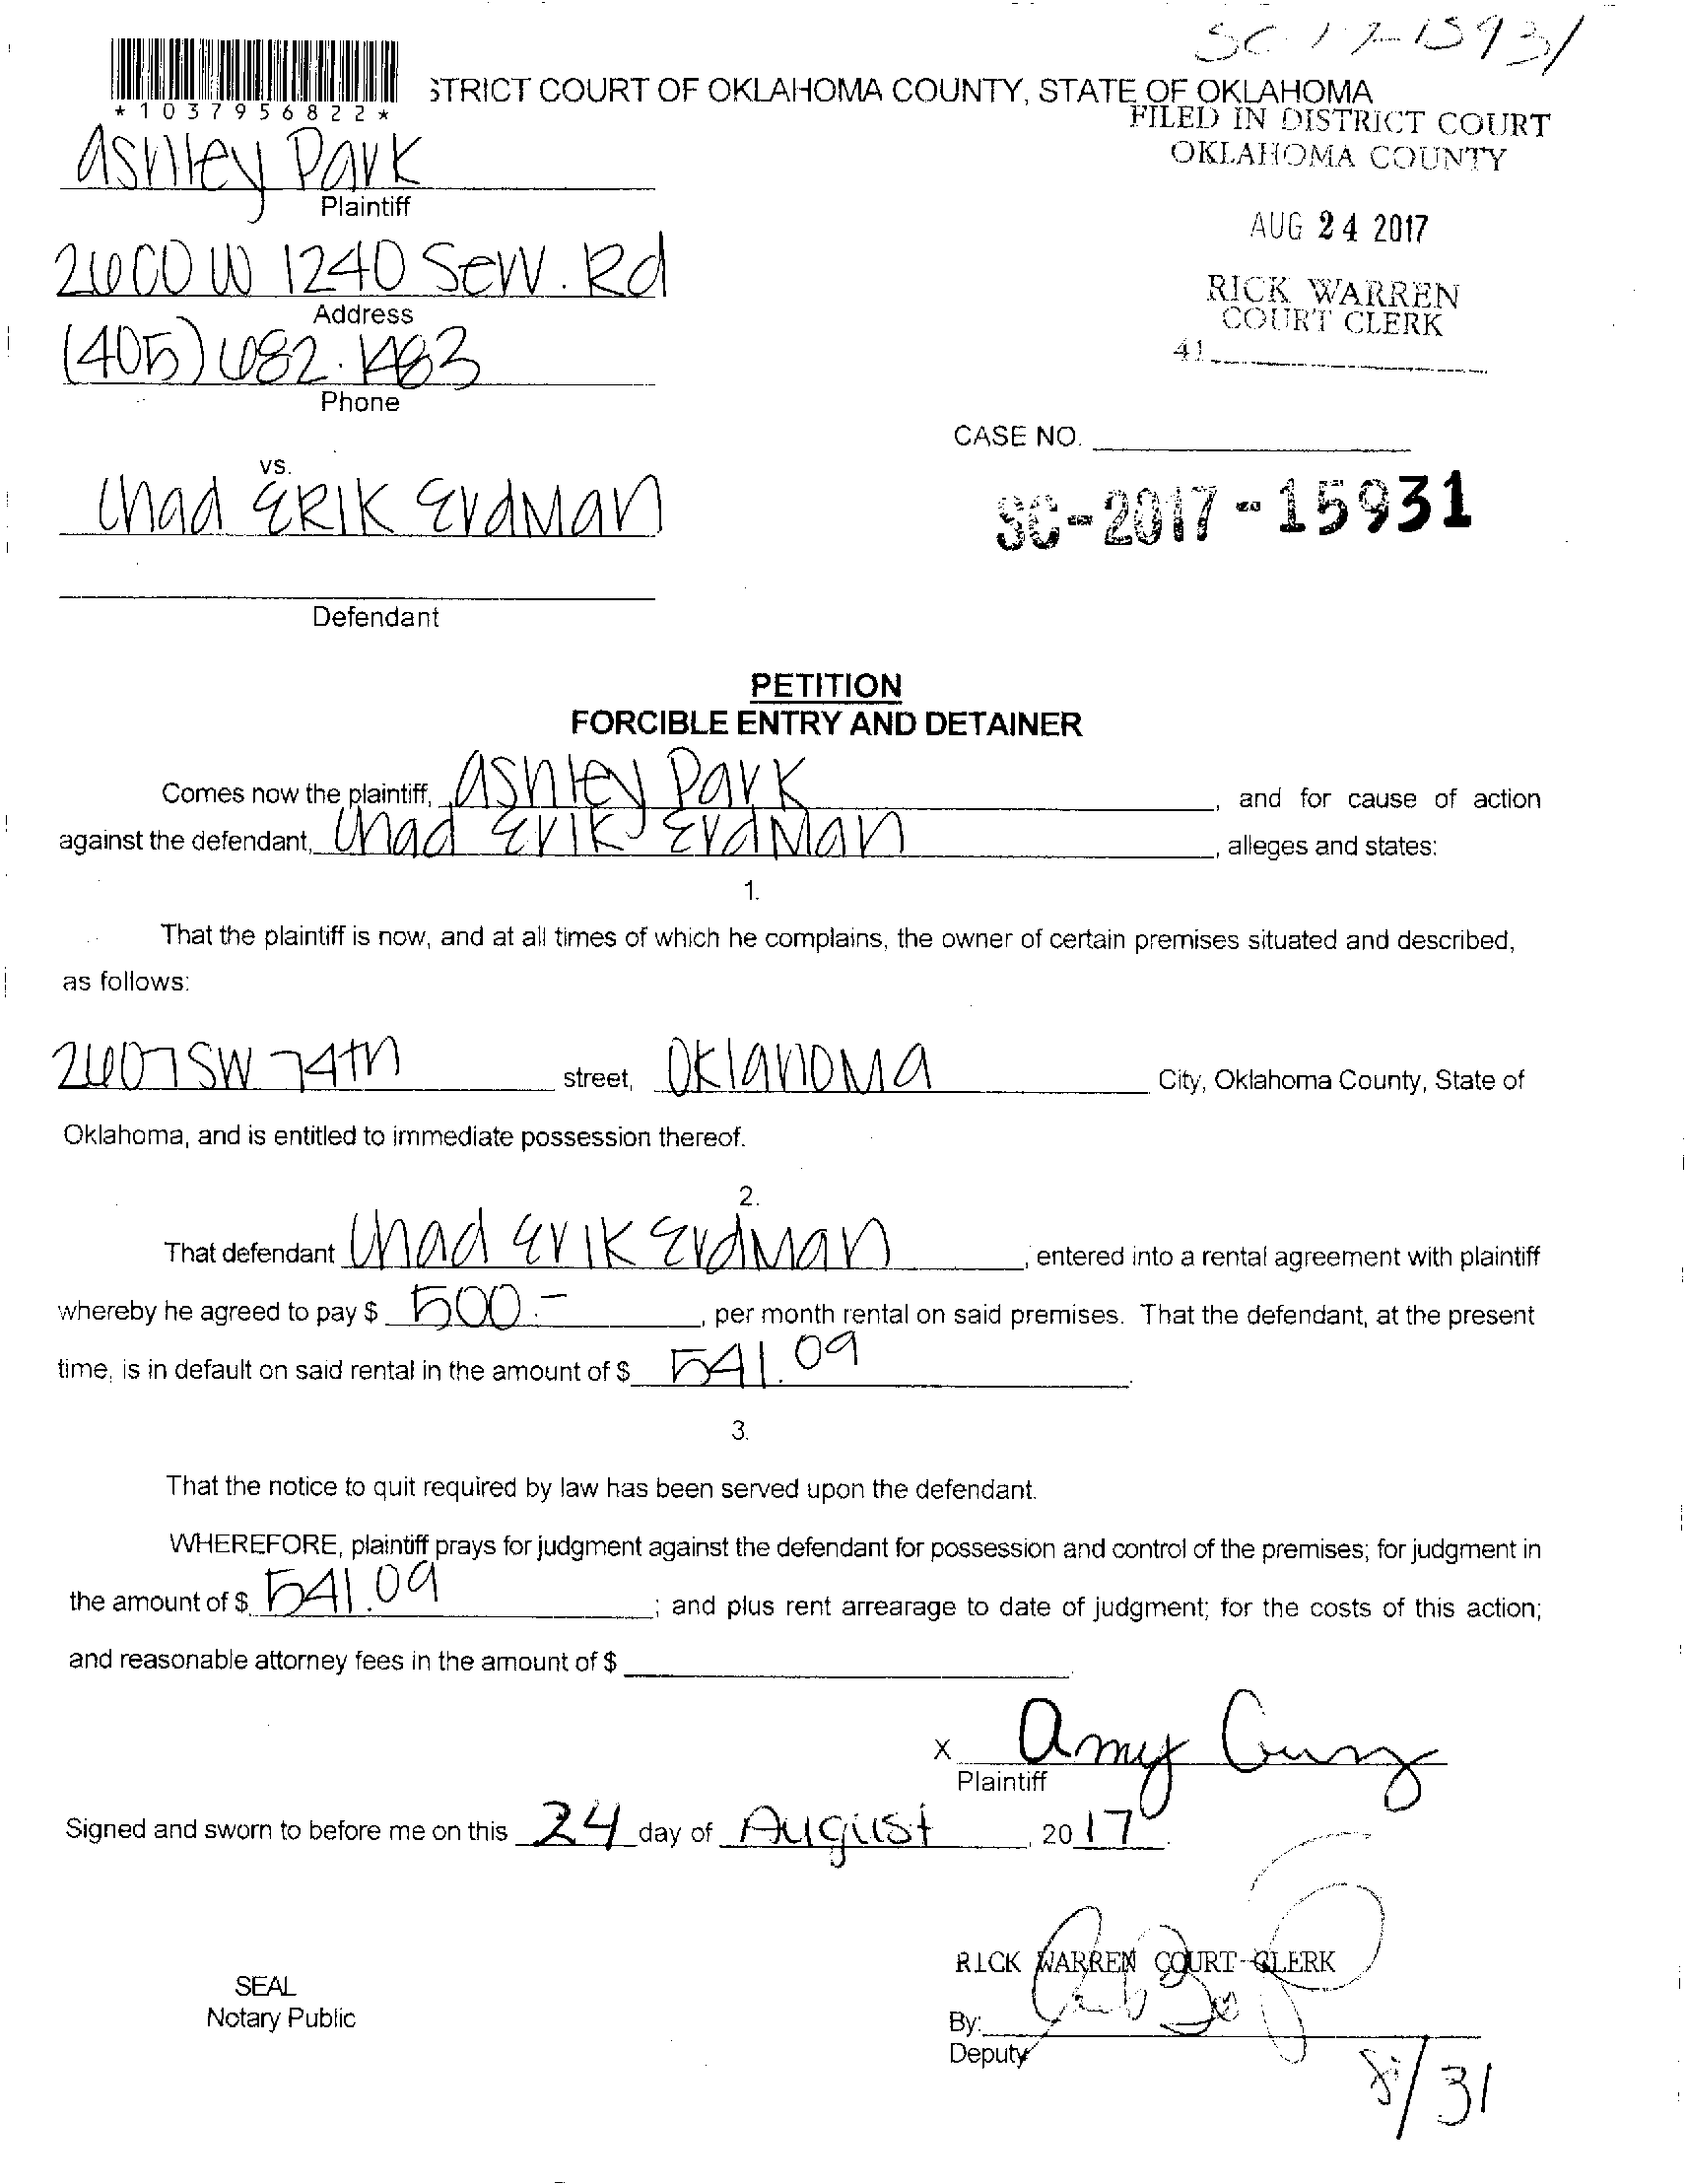 SC-17-15931
STRICT COURT OF OKLAHOMA COUNTY, STATE OF OKLAHOMA
*1037956822*
FILED IN DISTRICT COURT
OKLAHOMA COUNTY
Ashley Park
Plaintiff
AUG 24 2017
2600 W I240 Serv. Rd
Address
RICK WARREN
COURT CLERK
(405) 682.1483
41
Phone
CASE NO.
vs.
Chad ERIK Erdman
SC-2017-15931
Defendant
PETITION
FORCIBLE ENTRY AND DETAINER
Comes now the plaintiff, Ashley Park, and for cause of action
against the defendant, Chad Erik Erdman, alleges and states:
1.
That the plaintiff is now, and at all times of which he complains, the owner of certain premises situated and described,
as follows:
2607 SW 74th street, Oklahoma City, Oklahoma County, State of
Oklahoma, and is entitled to immediate possession thereof.
2.
That defendant Chad Erik Erdman, entered into a rental agreement with plaintiff
whereby he agreed to pay $ 500.-, per month rental on said premises. That the defendant, at the present
time, is in default on said rental in the amount of $ 541.09.
3.
That the notice to quit required by law has been served upon the defendant.
WHEREFORE, plaintiff prays for judgment against the defendant for possession and control of the premises; for judgment in
the amount of $ 541.09; and plus rent arrearage to date of judgment; for the costs of this action;
and reasonable attorney fees in the amount of $
X Amy
Plaintiff
Signed and sworn to before me on this 24 day of August, 2017.
RICK WARREN COURT CLERK
SEAL
Notary Public
By:
Deputy
8/31